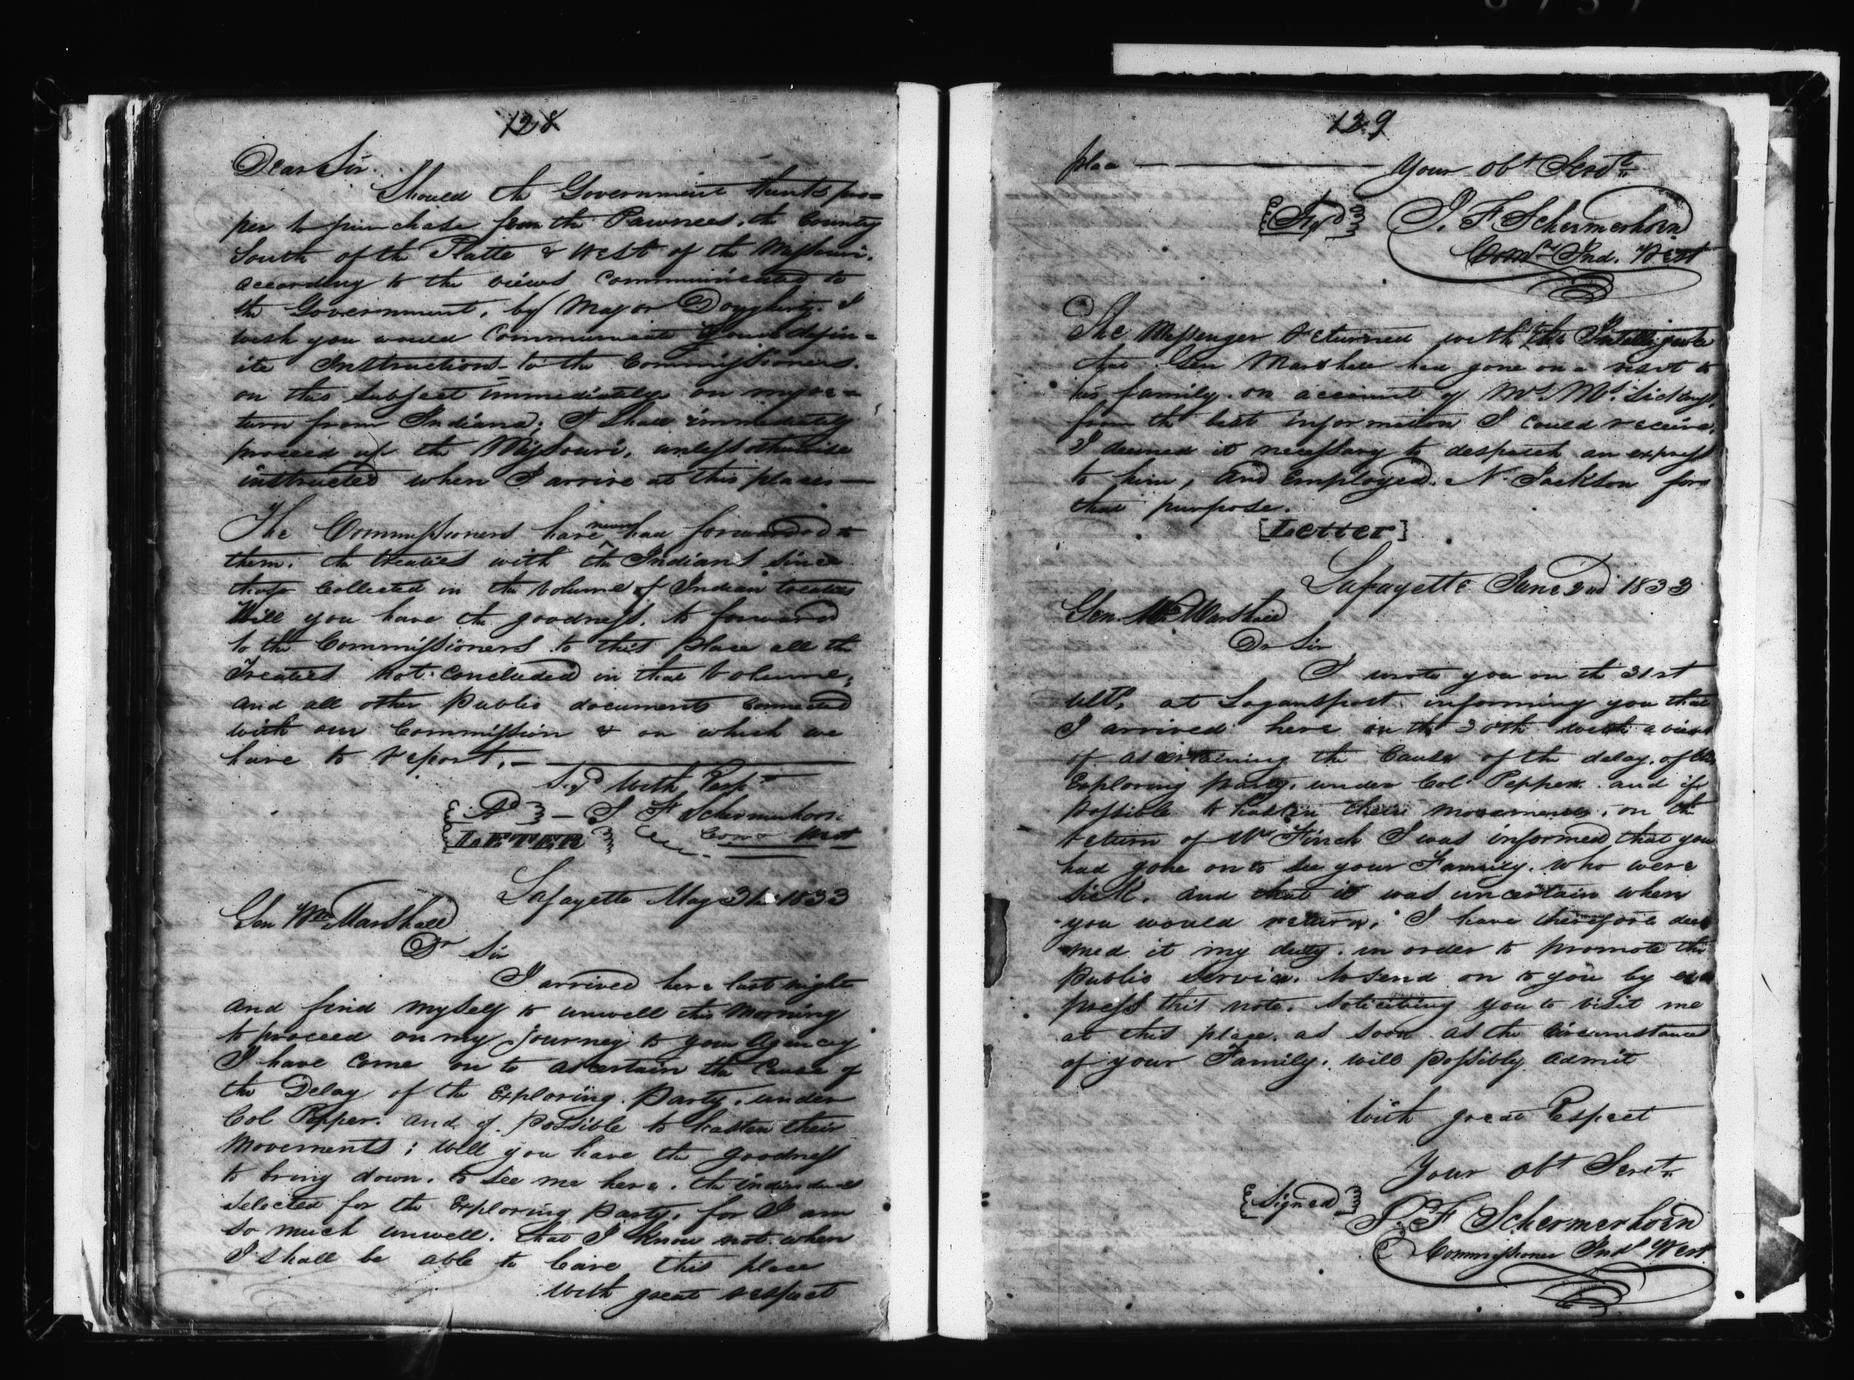 128
Dear Sir.
Should the Government think pro=
per to purchase from the Pawnees, the County
South of the Platte & West of the Missouri.
according to the views communicated to
the Government, by Major Dougherty. I
wish you would communicate your defin=
ite Instruction to the Commissioners.
on this subject immediately on my re=
turn from Indiana; I shall immediately
proceed up the Missouri, unless otherwise
instructed when I arrive at this place—
The Commissioners have never had forwarded to
them. the treaties with the Indians since
those Collected in the Volume of Indian treaties
Will you have the goodness, to forward
to the Commissioners to this place all the
Treaties not concluded in that Volume;
and all other public documents connected
with our Commission & on which we
have to report.—
With Resp.
J F Schermerhorn
Com West
LETER
Lafayette May 31st 1833
Gen Wm Marshall
Dr Sir
I arrived here last night
and find myself to unwell this morning
to proceed on my journey to your Agency
I have come on to ascertain the Cause of
the Delay of the Exploring Party, under
Col Pepper. and if possible to hasten their
movements; Will you have the goodness
to bring down, to see me here. the individuals
selected for the Exploring party, for I am
so much unwell. that I know not when
I shall be able to leave this place
With great respect
129
place — Your Obt Servt
Sgd J. F Schermerhorn
Comr Ind. West
The Messenger returned with the Intelligence
that Gen Marshall had gone on a visit to
his family. on account of Mrs Ms. sickness,
from the best information I could receive,
I deemed it necessary to despatch an express
to him, and employed. N. Jackson for
that purpose.
[Letter]
Lafayette June 2nd 1833
Gen. Wm Marshall
Dr Sir
I wrote you on the 31st
ulto, at Logansport. informing you that
I arrived here on the 30th with a view
of ascertaining the Cause of the delay, of the
Exploring Party, under Col Pepper. and if
possible to hasten their movements, on the
return of Mr Finch I was informed that you
had gone on to see your Family. who were
sick, and that it was uncertain when
you would return; I have therefore dee
med it my duty. in order to promote the
public service. to send on to you by ex
press this note. soliciting you to visit me
at this place, as soon as the circumstance
of your Family. will possibly admit
With great Respect
Your obt Servt
Signed J. F Schermerhorn
Commissioner Ind West